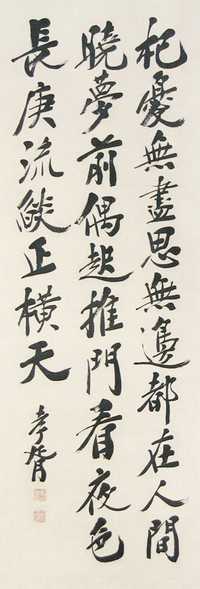 杞憂無盡思無邊都在人間
曉夢前偶起推門看夜色
長庚流燄正橫天
孝胥